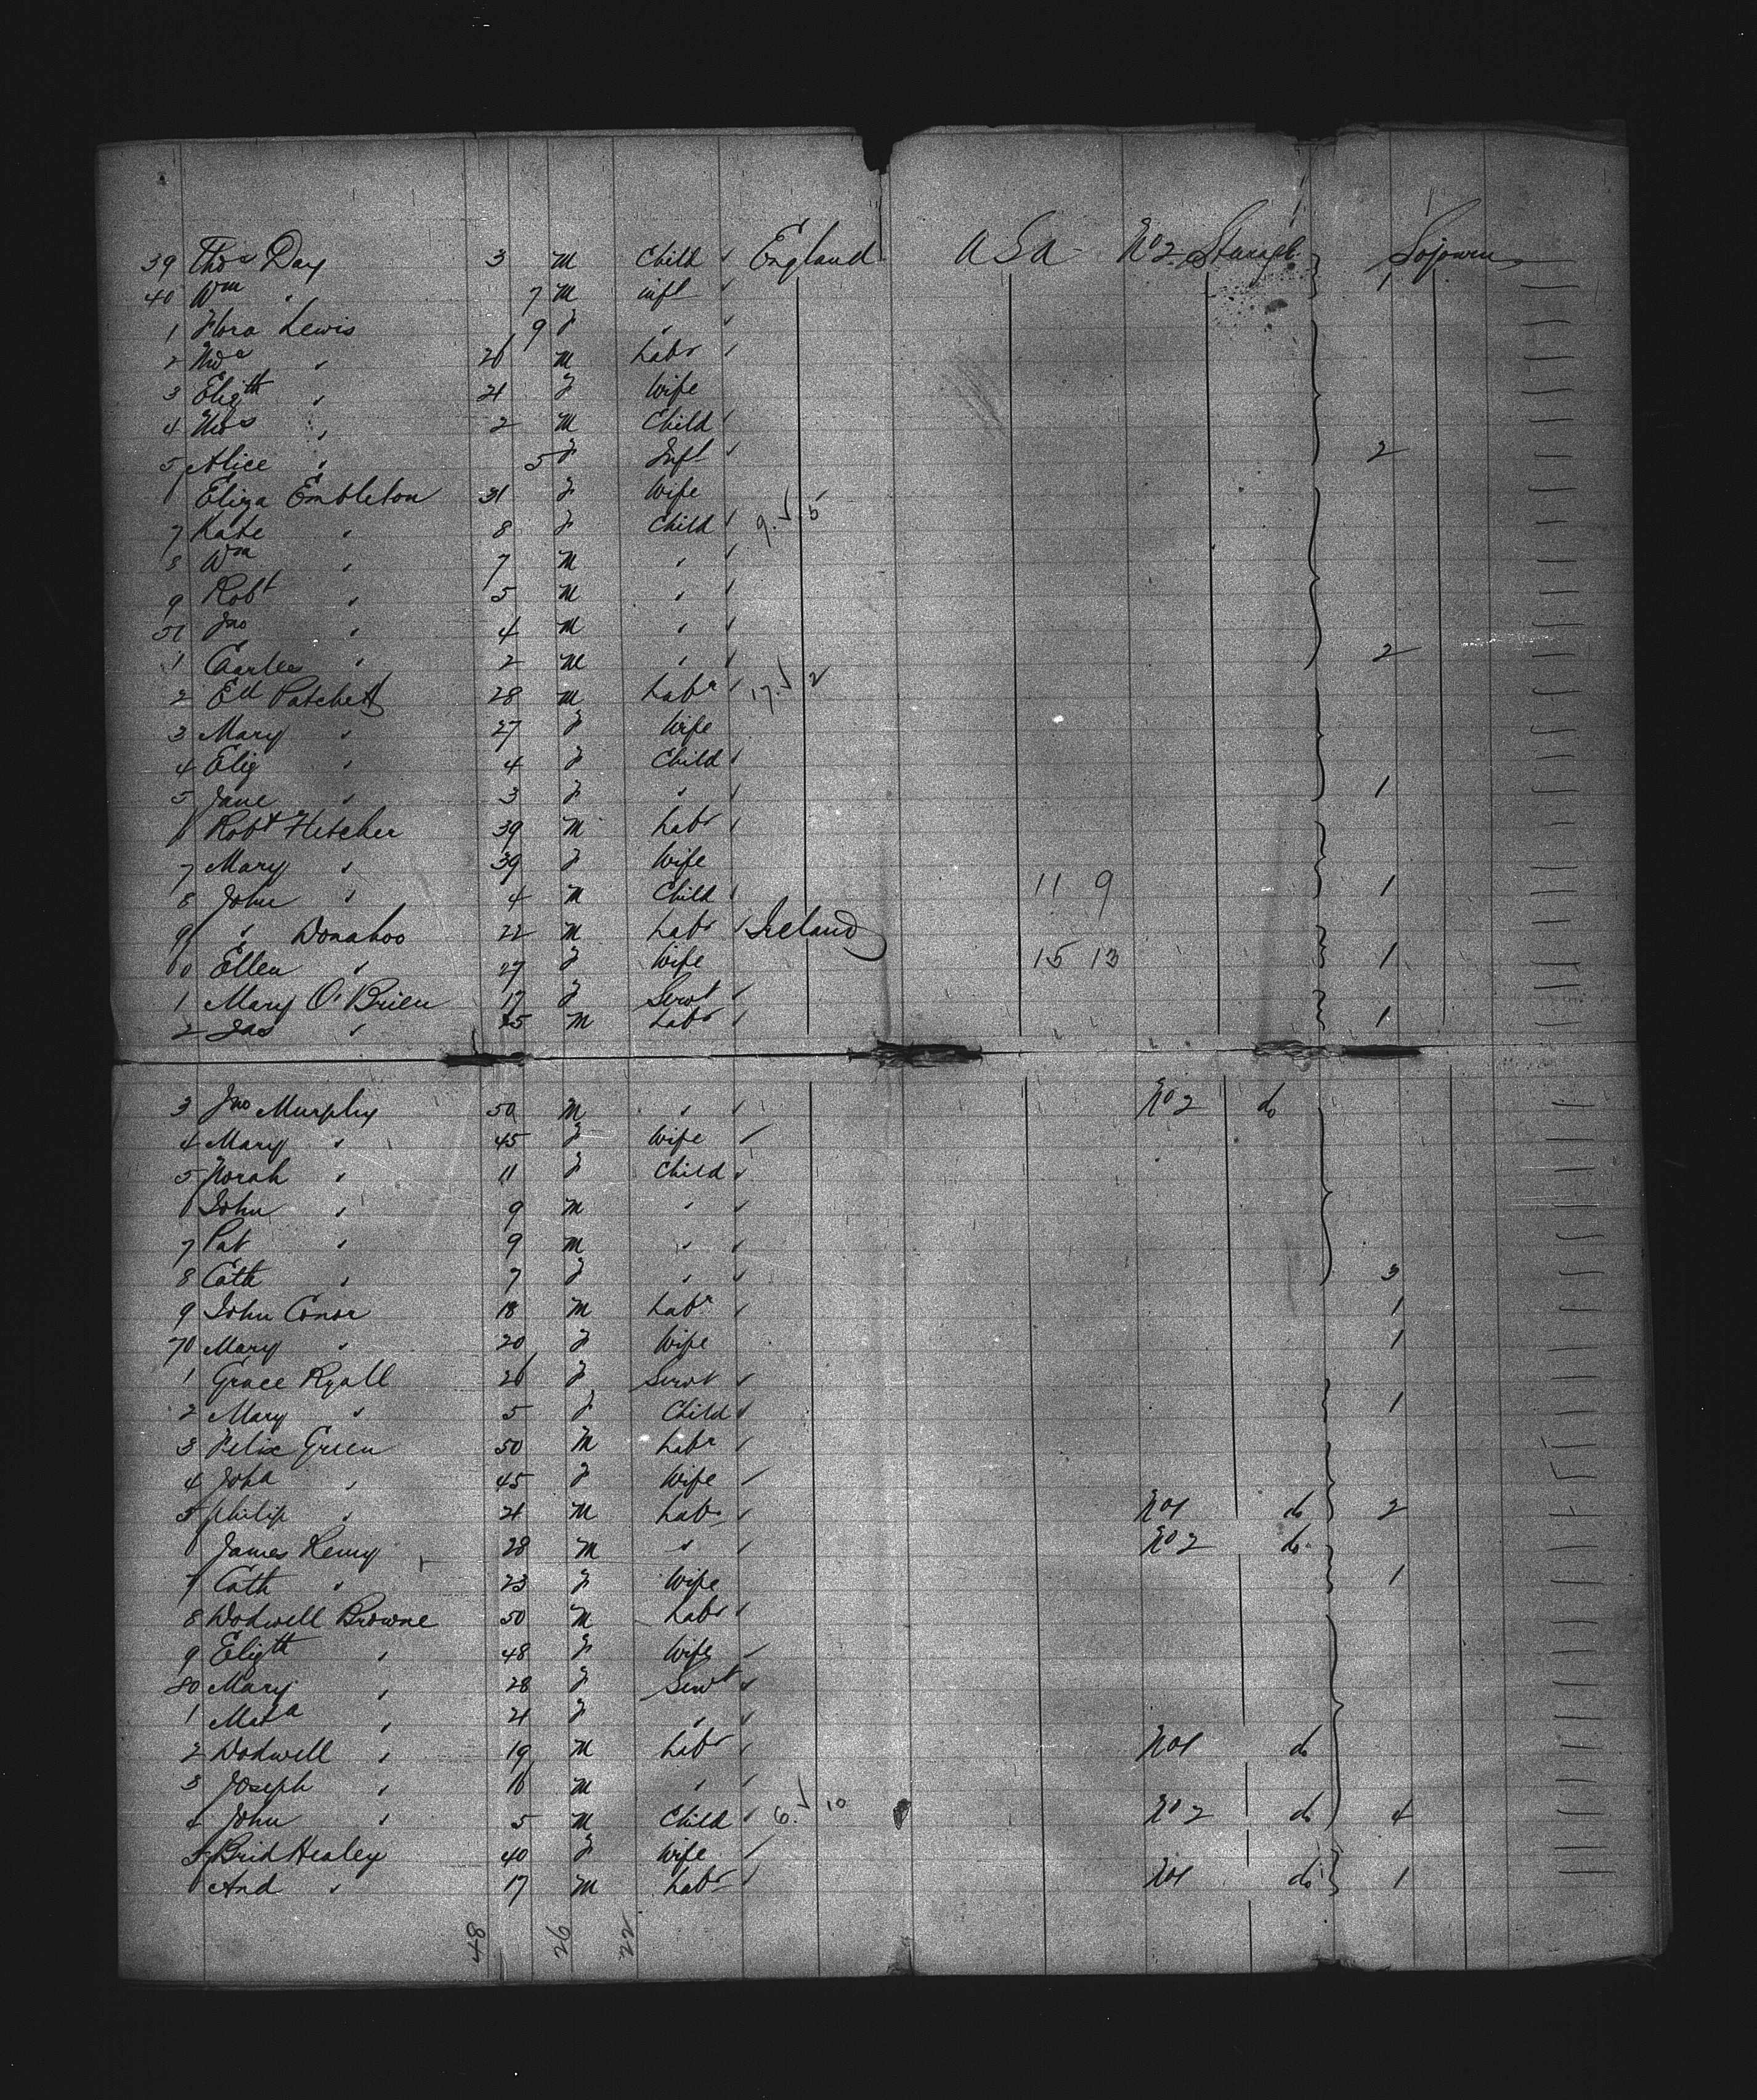 39 Thos Day 3 M Child ✓ England U S A No 2 Steerage } Sojourn
40 Wm " 7 M inft ✓ 1
1 Flora Lewis 9 F " ✓
2 Thos " 26 M Labr ✓
3 Elizth " 21 F Wife
4 Thos " 2 M Child ✓
5 Alice " 5 F Inft ✓ 2
6 Eliza Embleton 31 F Wife
7 Kate " 8 F Child ✓ 9. ✓ 5
8 Wm " 7 M " ✓
9 Robt " 5 M " ✓
50 Jno " 4 M " ✓
1 Charles " 2 M " ✓ 2
2 Ed Patchett 28 M Labr ✓ 17. ✓ 2
3 Mary " 27 F Wife
4 Eliz " 4 F Child ✓
5 Jane " 3 F " ✓ 1
6 Robt Fletcher 39 M Labr ✓
7 Mary " 39 F Wife
8 John " 4 M Child ✓ 11 9 } 1
9 " Donahoo 22 M Labr ✓ Ireland
60 Ellen " 27 F Wife 15 13 } 1
1 Mary O'Brien 17 F Servt ✓
2 Jas " 25 M Labr ✓ } 1
3 Jno Murphy 50 M " ✓ No 2 do
4 Mary " 45 F Wife ✓
5 Norah " 11 F Child ✓
6 John " 9 M " ✓
7 Pat " 9 M " ✓
8 Cath " 7 F " ✓ } 3
9 John Conor 18 M Labr ✓ 1
70 Mary " 20 F Wife 1
1 Grace Ryall 26 F Servt ✓
2 Mary " 5 F Child ✓ } 1
3 Felix Green 50 M Labr ✓
4 Joha " 45 F Wife ✓
5 Philip " 21 M Labr ✓ No 1 do } 2
6 James Kenny 28 M " ✓ No 2 do
7 Cath " 23 F Wife } 1
8 Dodwell Browne 50 M Labr ✓
9 Elizth " 48 F Wife ✓
80 Mary " 28 F Servt ✓
1 Mata " 21 F " ✓
2 Dodwell " 19 M Labr ✓ No 1 do
3 Joseph " 16 M " ✓
4 John " 5 M Child ✓ 6. ✓ 10 No 2 do } 4
5 Brid Healey 40 F Wife ✓
6 And " 17 M Labr ✓ No 1 do } 1
48 26 22